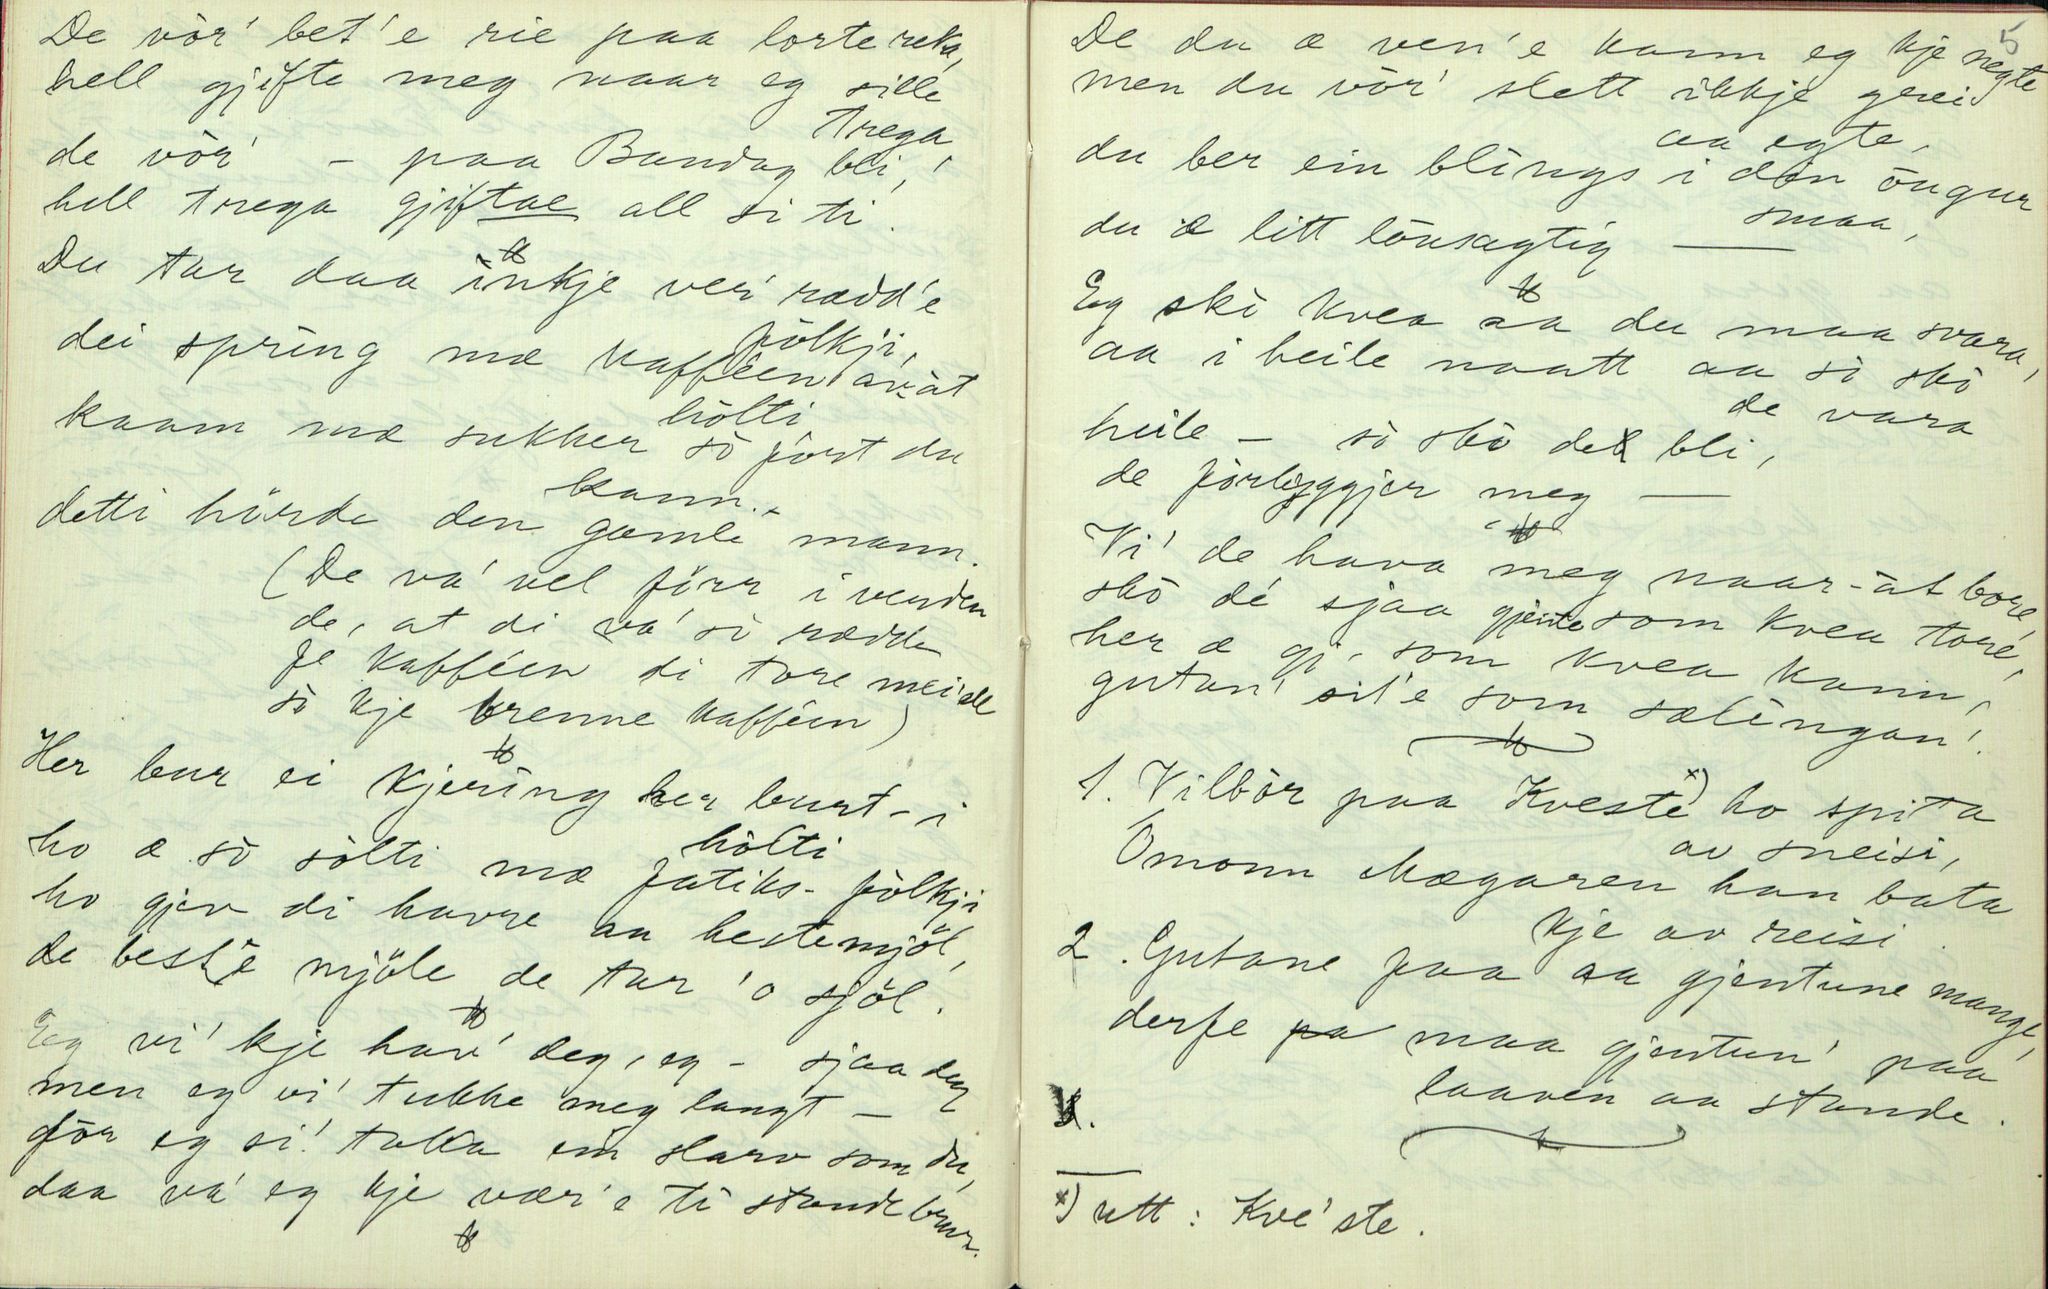 De vör' bet'e rie paa lortereka,
hell gjifte meg naar eg sille
trega
de vör' - paa Bundag bli,
hell trega gjiftae all si ti.
Du tar daa inkje ver' rædd'e
fölkji,
dei spring mæ kafféen av-át
hölti
kaam mæ sukker sò fort du
kann.
detti hürde den gamle mann.
(De va' vel förr i verden
de, at di va' sò rædde
fe kafféen di tore mei'de
sò kje brenne kafféen)
Her bur ei kjering her burt-i
hölti
ho æ sò sölti mæ fatiks-fölkji
ho gjev di havre aa hestemjöl,
de beste mjöle de tar 'o sjöl.
Eg vi' kje hav' deg, eg - sjaa deg
men eg vi' tukke meg langt -
för eg si' taka ein slarv som du,
daa va' eg kje vær'e ti stande brur.
5
De du æ ven'e kann eg kje negte
men du vör' slett ikkje grei
aa egte,
du ber ein blings i din öugur
smaa,
du æ litt lönsagtig —
Eg ski kvea aa du maa svara,
aa i heile naatt aa sò skò
de vara
heile - sò skò de bli,
de förliggjer meg —
Vi' de hava meg naar-át bore,
skò dé sjaa gjente som kvea toré,
her æ gj- som kvea kann,
gutan' sit'e som sælingan'.
1. Vilbör paa Kveste x) ho spita
av sneisi,
Ömonn Mægaren han bata
kje av reisi.
2. Gutane faa aa gjentune mange,
derfe maa gjentun' paa
laaven aa stande.
x) utt: Kve'ste.